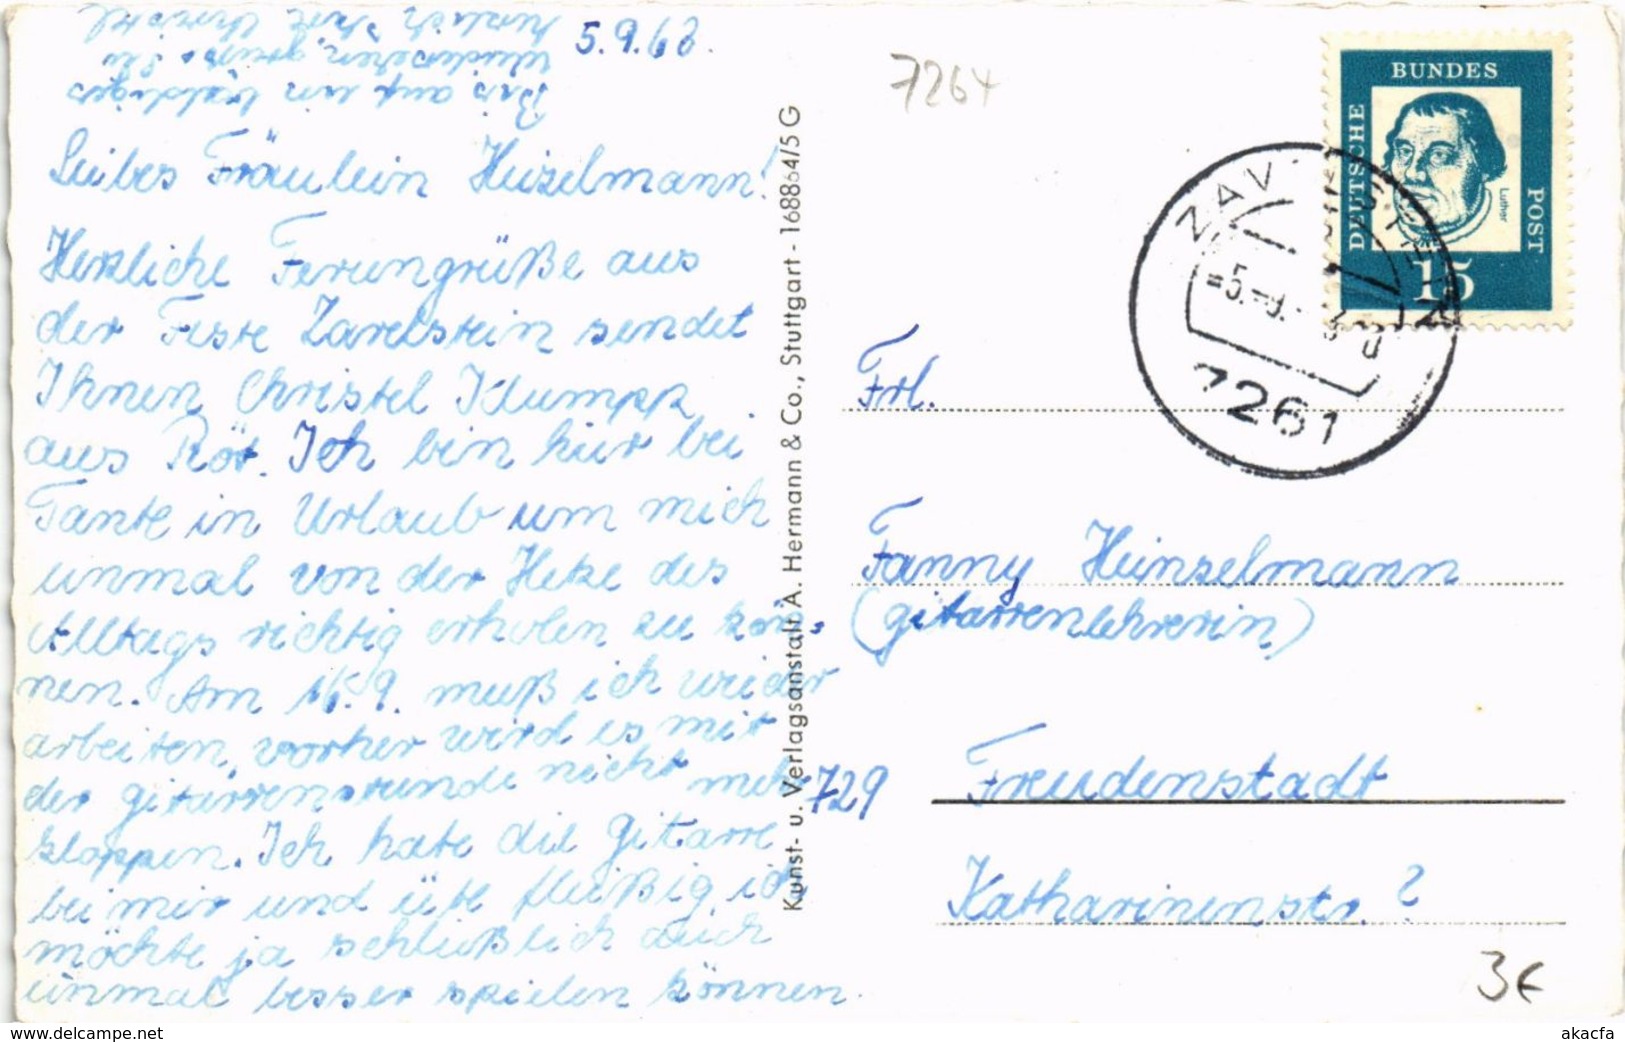 5.9.63.
Liebes Fräulein Heizelmann!
Herzliche Feriengrüße aus
der Feste Zavelstein sendet
Ihnen Christel Klumpp
aus Röt. Ich bin hier bei
Tante in Urlaub um mich
einmal von der Hetze des
Alltags richtig erholen zu kön,
nen. Am 16.9. muß ich wieder
arbeiten, vorher wird es mit
der Gitarrenstunde nicht mehr
klappen. Ich habe die Gitarre
bei mir und übe fleißig, ich
möchte ja schließlich auch
einmal besser spielen können.
Bis auf ein baldiges
Wiedersehen grüßt Sie
herzlich Ihre Christel
Kunst- u. Verlagsanstalt A. Hermann & Co., Stuttgart - 168864/5 G
7264
DEUTSCHE
BUNDES
POST
Luther
15
ZAVELSTEIN
-5.-9. 63
7261
Frl.
Fanny Heinzelmann
(Gitarrenlehrerin)
729 Freudenstadt
Katharinenstr. ?
3€
www.delcampe.net
akacfa